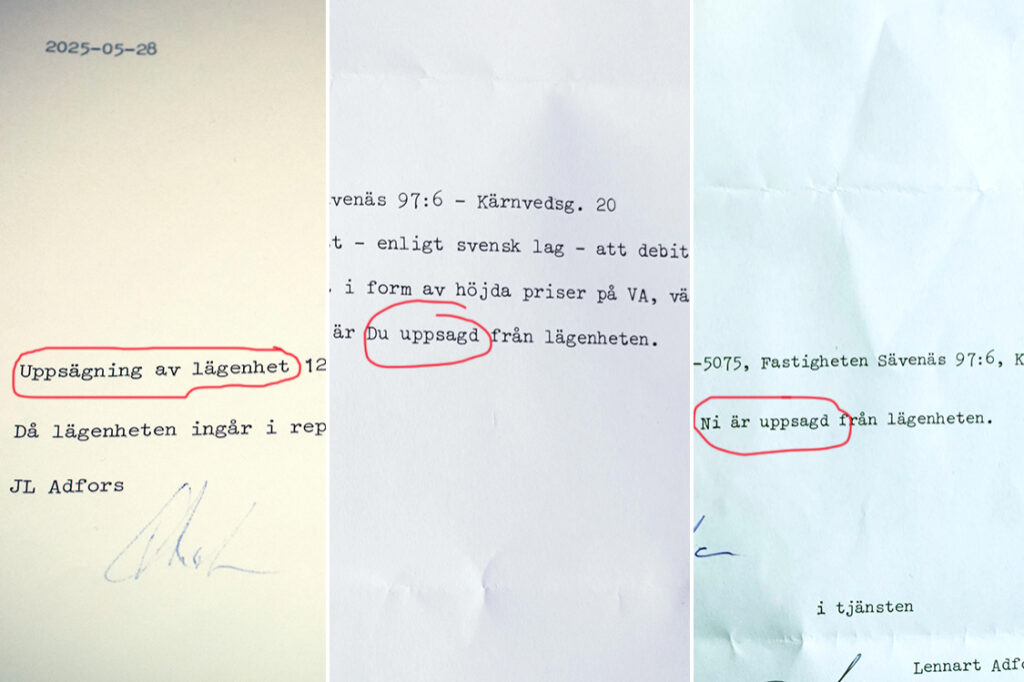 2025-05-28
Uppsägning av lägenhet 12
Då lägenheten ingår i rep
JL Adfors
venäs 97:6 - Kärnvedsg. 20
t - enligt svensk lag - att debit
. i form av höjda priser på VA, vä
är Du uppsagd från lägenheten.
-5075, Fastigheten Sävenäs 97:6, K
Ni är uppsagd från lägenheten.
i tjänsten
Lennart Adfo